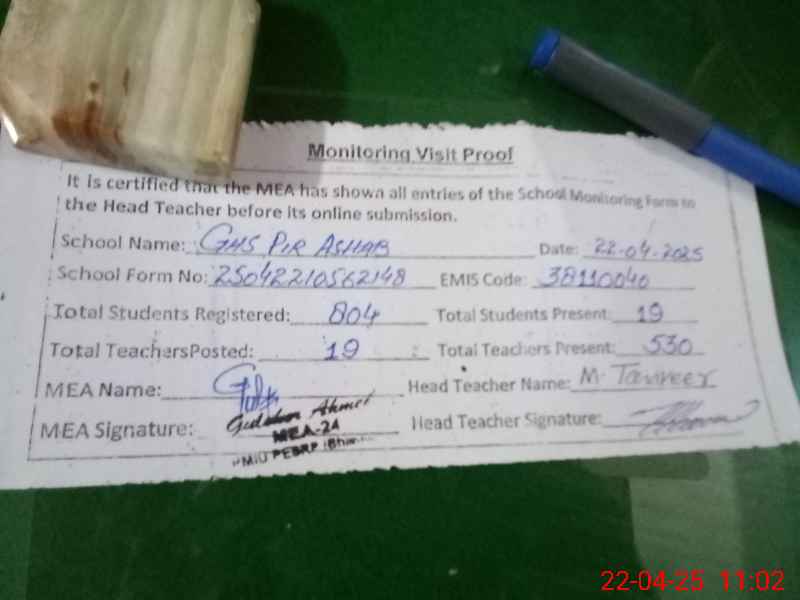 Monitoring Visit Proof
It is certified that the MEA has shown all entries of the School Monitoring Form to
the Head Teacher before its online submission.
School Name: GHS PIR ASHAB Date: 22-04-2025
School Form No: 25042210562148 EMIS Code: 38110040
Total Students Registered: 804 Total Students Present: 19
Total TeachersPosted: 19 Total Teachers Present: 530
MEA Name: Head Teacher Name: M. Tanveer
MEA Signature: Ahmed Head Teacher Signature:
MEA-24
22-04-25 11:02